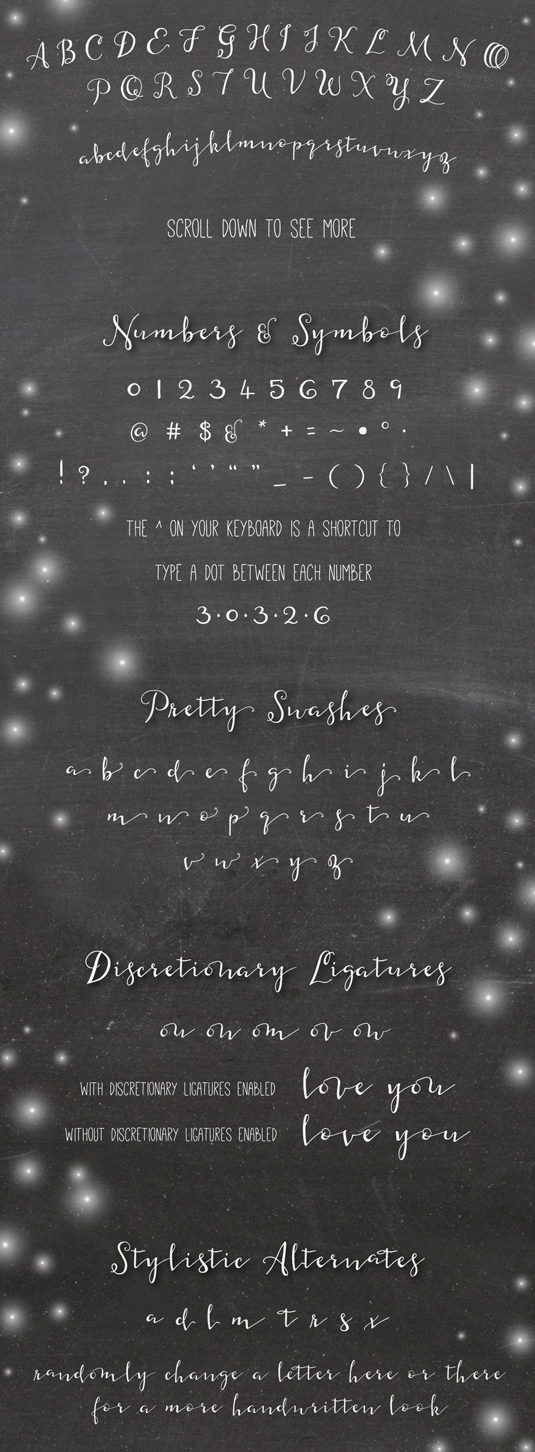 A B C D E F G H I J K L M N O
P Q R S T U V W X Y Z
abcdefghijklmnopqrstuvwxyz
SCROLL DOWN TO SEE MORE
Numbers & Symbols
0 1 2 3 4 5 6 7 8 9
@ # $ & * + = ~ • ° ·
! ? , . : ; ‘ ’ “ ” _ - ( ) { } / \ |
THE ^ ON YOUR KEYBOARD IS A SHORTCUT TO
TYPE A DOT BETWEEN EACH NUMBER
3·0·3·2·6
Pretty Swashes
a b c d e f g h i j k l
m n o p q r s t u
v w x y z
Discretionary Ligatures
ou on om ov ow
WITH DISCRETIONARY LIGATURES ENABLED love you
WITHOUT DISCRETIONARY LIGATURES ENABLED love you
Stylistic Alternates
a d l m t r s x
randomly change a letter here or there
for a more handwritten look